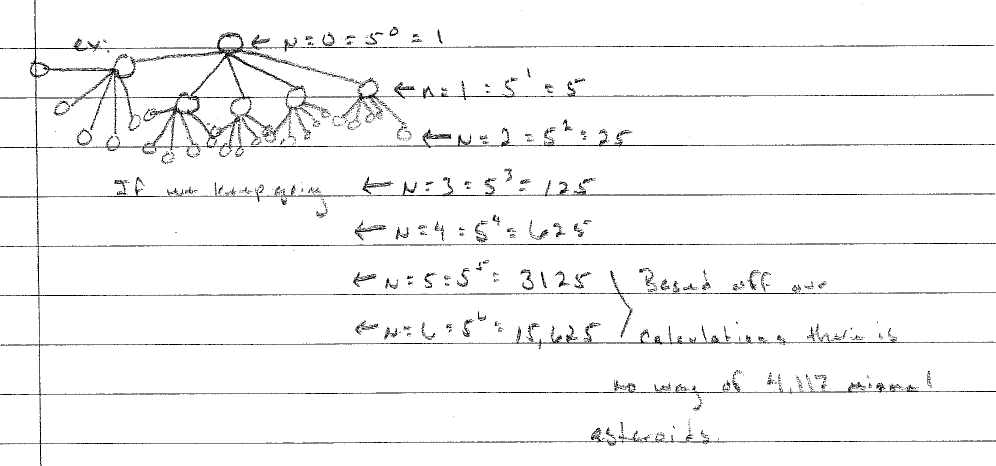 ex: ← N=0=5⁰=1
←n=1=5¹=5
←N=2=5²=25
If we keep going ←N=3=5³=125
←N=4=5⁴=625
←N=5=5⁵=3125 Based off our
←N=6=5⁶=15,625 calculations there is
no way of 4,117 minnal
asteroids.